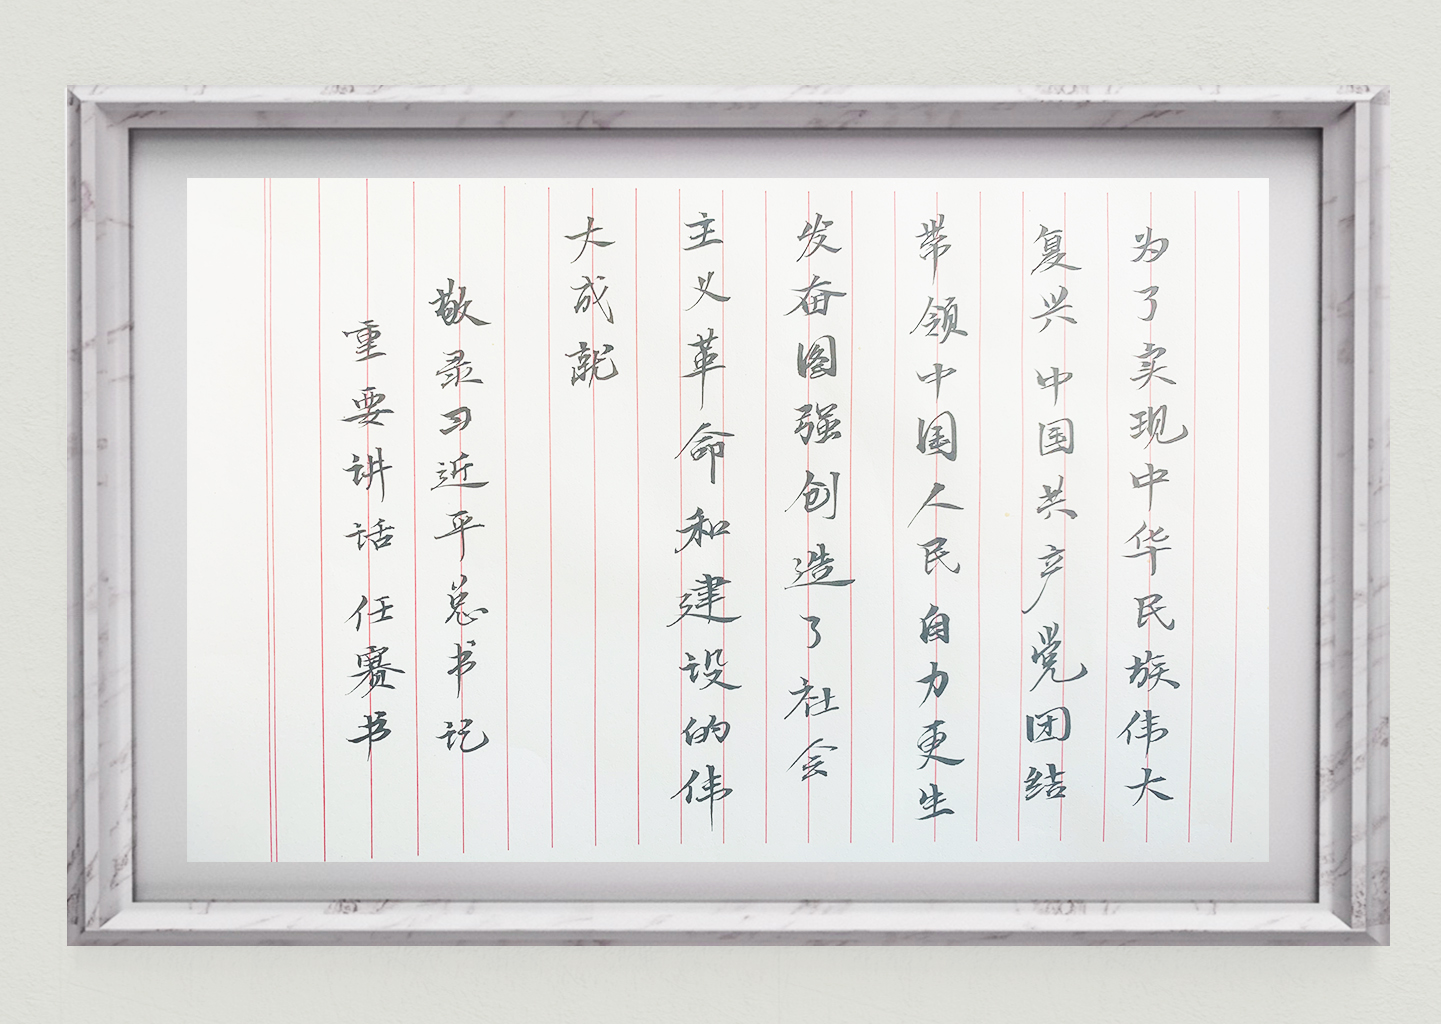 为了实现中华民族伟大
复兴中国共产党团结
带领中国人民自力更生
发奋图强创造了社会
主义革命和建设的伟
大成就
敬录习近平总书记
重要讲话 任赛书